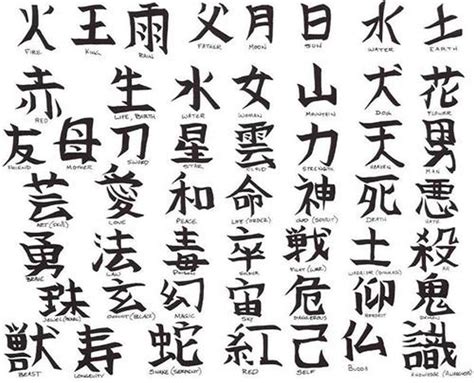 火 王 雨 父 月 日 水 土
FIRE KING RAIN FATHER MOON SUN WATER EARTH
赤 生 水 女 山 犬 花
RED LIFE, BIRTH WATER WOMAN MOUNTAIN DOG FLOWER
友 母 刀 星 雲 力 天 男
FRIEND MOTHER SWORD STAR CLOUD STRENGTH HEAVEN MAN
芸 愛 和 命 神 死 悪
ART (SKILL) LOVE PEACE LIFE (ORDER) GOD (SPIRIT) DEATH HATE
勇 法 毒 卒 戦 士 殺
BRAVE LAW POISON SOLDIER FIGHT (WAR) KILL
珠 玄 幻 宙 危 仰 鬼
MAGIC SKY DANGEROUS DEMON
獣 寿 蛇 紅 己 仏 識
BEAST LONGEVITY SNAKE (SERPENT) RED SELF